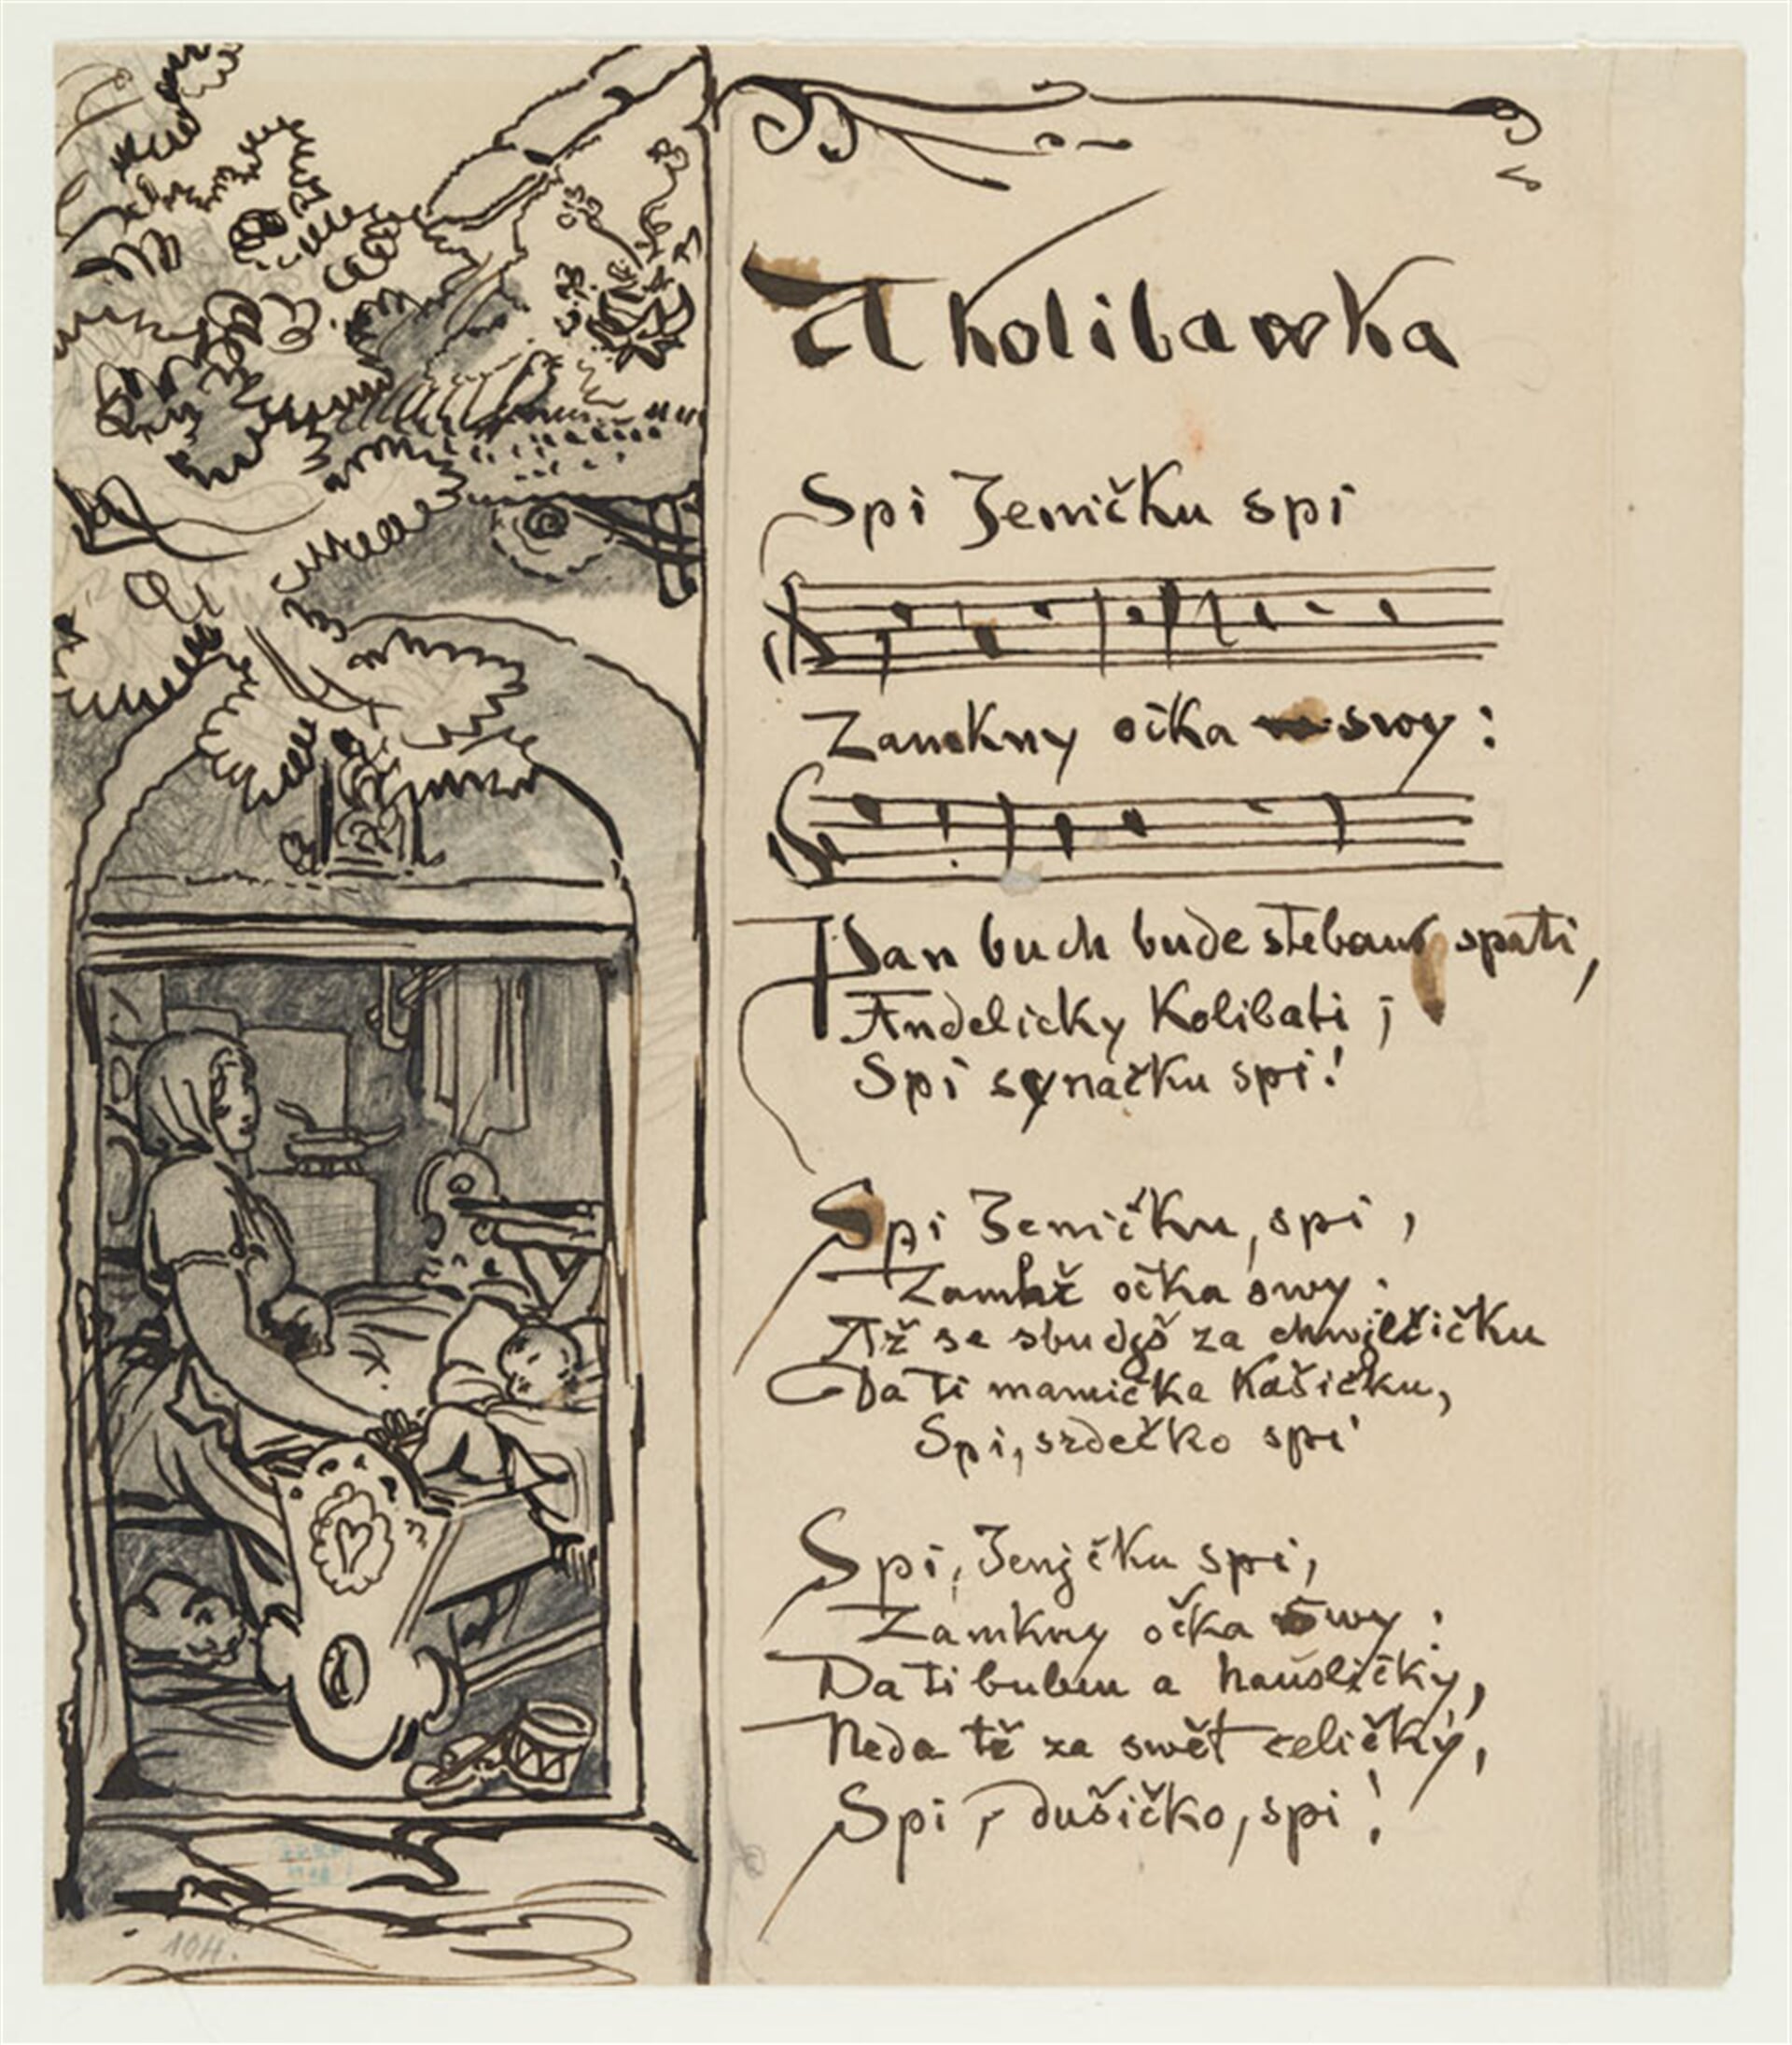 A Kolibawka
Spi Jeničku spi
Zamkny očka swy:
Pan buch bude stebau spati,
Andelicky Kolibati;
Spi synačku spi!
Spi Jeničku, spi,
očka swy.
Až se sbudjš za chwjlčičku
Da ti mamička Kašičku,
Spi, srdečko spi
Spi, Jenjčku spi,
Zamkny očka swy:
Da ti buben a hausličky,
Neda tě za swět celičky,
Spi, dušičko, spi!
104.